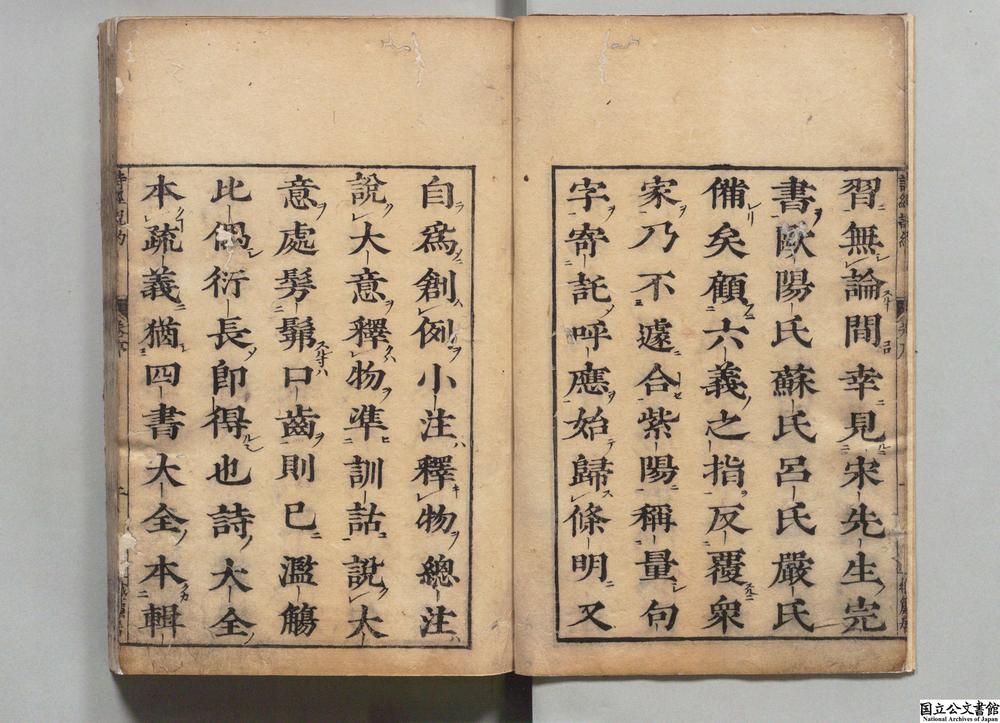 習無論間幸見宋先生完
書歐陽氏蘇氏呂氏嚴氏
備矣顧六義之指反覆衆
家乃不遽合紫陽稱量句
字寄託呼應始歸條明又
自爲創例小注釋物總注
說大意釋物準訓詁說大
意處髣髴口齒則已濫觴
比偶衍長卽得也詩大全
本疏義猶四書大全本輯
国立公文書館
National Archives of Japan